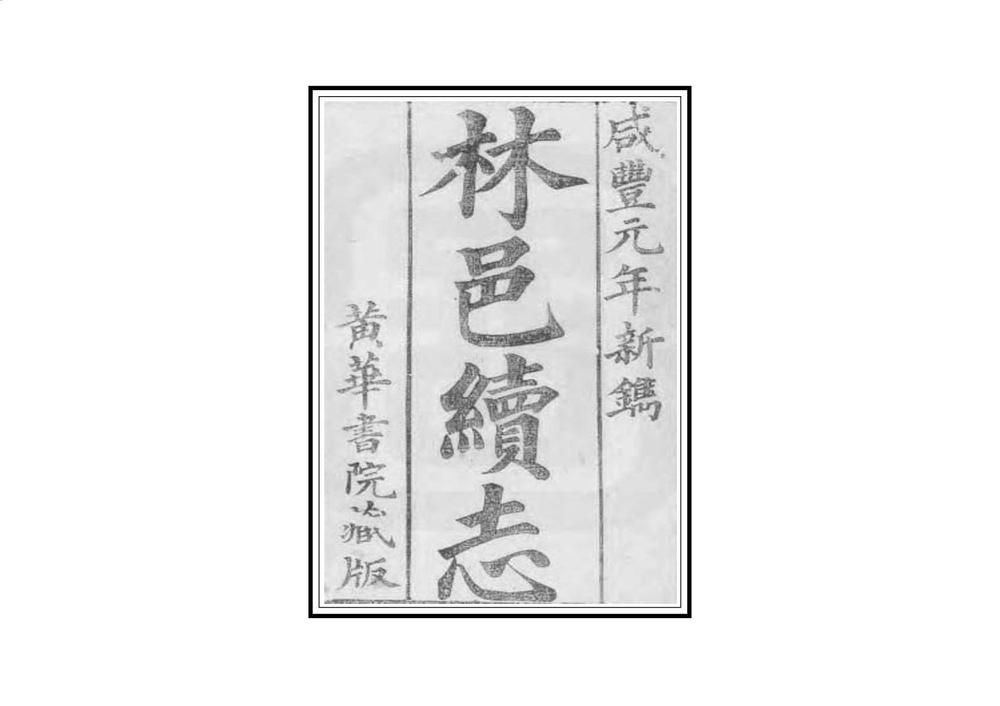 咸豐元年新鐫
林邑續志
黃華書院藏版